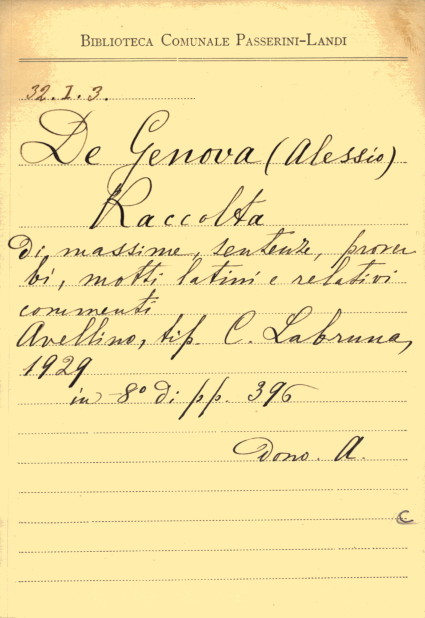 BIBLIOTECA COMUNALE PASSERINI-LANDI
32.I.3.
De Genova (Alessio)
Raccolta
di massime, sentenze, prover
bi, motti latini e relativi
commenti
Avellino, tip. C. Labruna,
1929
in 8° di pp. 396
Dono. A.
C